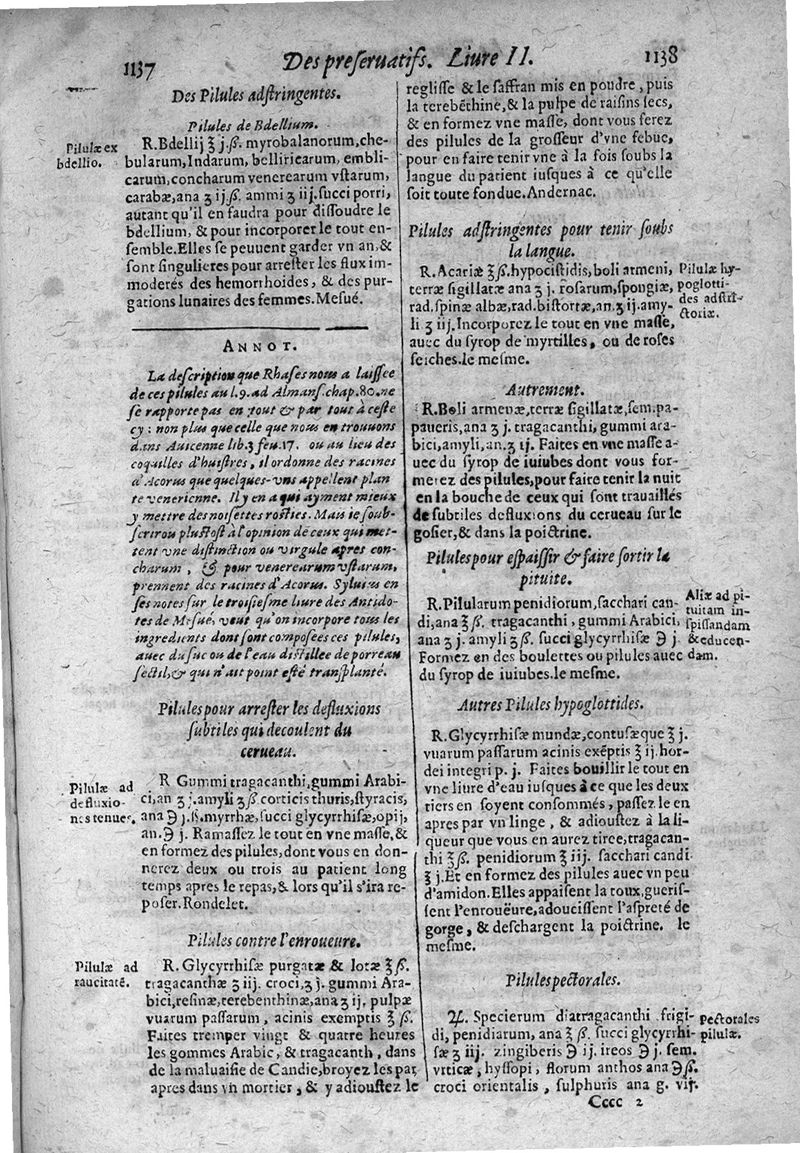 1137
Des preseruatifs. Liure II.
1138
Des Pilules adstringentes.
Pilules de Bdellium.
Pilulæ ex
bdellio.
R.Bdellij ʒ j.ß. myrobalanorum, che-
bularum, Indarum, belliricarum, embli-
carum, concharum venerearum vstarum,
carabæ, ana ʒ ij.ß. ammi ʒ iij. succi porri,
autant qu'il en faudra pour dissoudre le
bdellium, & pour incorporer le tout en-
semble. Elles se peuuent garder vn an, &
sont singulieres pour arrester les flux im-
moderés des hemorrhoides, & des pur-
gations lunaires des femmes. Mesué.
ANNOT.
La description que Rhases nous a laissee
de ces pilules au l.9. ad Almans. chap. 80. ne
se rapporte pas en tout & par tout à ceste
cy: non plus que celle que nous en trouuons
dans Auicenne lib.3 feu.17. ou au lieu des
coquilles d'huistres, il ordonne des racines
d'Acorus que quelques-vns appellent plan
te venerienne. Il y en a qui ayment mieux
y mettre des noisettes rosties. Mais ie soub-
scrirou plustost à l'opinion de ceux qui met-
tent vne distinction ou virgule apres con-
charum, & pour venerearum vstarum,
prennent des racines d'Acorus. Syluius en
ses notes sur le troisiesme liure des Antido-
tes de Mesué, veut qu'on incorpore tous les
ingredients dont sont composées ces pilules,
auec du suc ou de l'eau distillee de porreau
sectil, & qui n'ait point esté transplanté.
Pilules pour arrester les defluxions
subtiles qui decoulent du
cerueau.
Pilulæ ad
defluxio-
nes tenues.
R Gummi tragacanthi, gummi Arabi-
ci, an ʒ j. amyli ʒ ß corticis thuris, styracis,
ana ℈ j.ß. myrrhæ, succi glycyrrhisæ, opij,
an. ℈ j. Ramassez le tout en vne masse, &
en formez des pilules, dont vous en don-
nerez deux ou trois au patient long
temps apres le repas, & lors qu'il s'ira re-
poser. Rondelet.
Pilules contre l'enroueure.
Pilulæ ad
raucitatē.
R. Glycyrrhisæ purgatæ & lotæ ℥ ß.
tragacanthæ ʒ iij. croci, ʒ j. gummi Ara-
bici, resinæ, terebenthinæ, ana ʒ ij. pulpæ
vuarum passarum, acinis exemptis ℥ ß.
Faites tremper vingt & quatre heures
les gommes Arabic, & tragacanth, dans
de la maluaisie de Candie, broyez les par
apres dans vn mortier, & y adioustez le
reglisse & le saffran mis en poudre, puis
la terebēthine, & la pulpe de raisins secs,
& en formez vne masse, dont vous ferez
des pilules de la grosseur d'vne febue,
pour en faire tenir vne à la fois soubs la
langue du patient iusques à ce qu'elle
soit toute fondue. Andernac.
Pilules adstringentes pour tenir soubs
la langue.
R. Acariæ ℥ ß. hypocistidis, boli armeni,
terræ sigillatæ ana ʒ j. rosarum, spongiæ,
rad. spinæ albæ, rad. bistortæ, an. ʒ ij. amy-
li ʒ iij. Incorporez le tout en vne masse,
auec du syrop de myrtilles, ou de roses
seiches. le mesme.
Pilulæ hy-
poglotti-
des adstri-
ctoriæ.
Autrement.
R. Boli armenæ, terræ sigillatæ, sem. pa-
paueris, ana ʒ j. tragacanthi, gummi ara-
bici, amyli, an. ʒ ij. Faites en vne masse a-
uec du syrop de iuiubes dont vous for-
merez des pilules, pour faire tenir la nuit
en la bouche de ceux qui sont trauaillés
de subtiles defluxions du cerueau sur le
gosier, & dans la poictrine.
Pilules pour espaissir & faire sortir la
pituite.
R. Pilularum penidiorum, sacchari can-
di, ana ℥ ß. tragacanthi, gummi Arabici,
ana ʒ j. amyli ʒ ß. succi glycyrrhisæ ℈ j.
Formez en des boulettes ou pilules auec
du syrop de iuiubes. le mesme.
Aliæ ad pi-
tuitam in-
spissandam
& educen-
dam.
Autres Pilules hypoglottides.
R. Glycyrrhisæ mundæ, contusæque ℥ j.
vuarum passarum acinis exēptis ℥ ij. hor-
dei integri p. j. Faites bouillir le tout en
vne liure d'eau iusques à ce que les deux
tiers en soyent consommés, passez le en
apres par vn linge, & adioustez à la li-
queur que vous en aurez tiree, tragacan-
thi ℥ ß. penidiorum ℥ iij. sacchari candi
℥ j. Et en formez des pilules auec vn peu
d'amidon. Elles appaisent la toux, gueris-
sent l'enroüeure, adoucissent l'aspreté de
gorge, & deschargent la poictrine. le
mesme.
Pilules pectorales.
♃. Specierum diatragacanthi frigi-
di, penidiarum, ana ℥ ß. succi glycyrrhi-
sæ ʒ iij. zingiberis ℈ ij. ireos ℈ j. sem.
vrticæ, hyssopi, florum anthos ana ℈ ß.
croci orientalis, sulphuris ana g. vij.
Pectorales
pilulæ.
Cccc 2